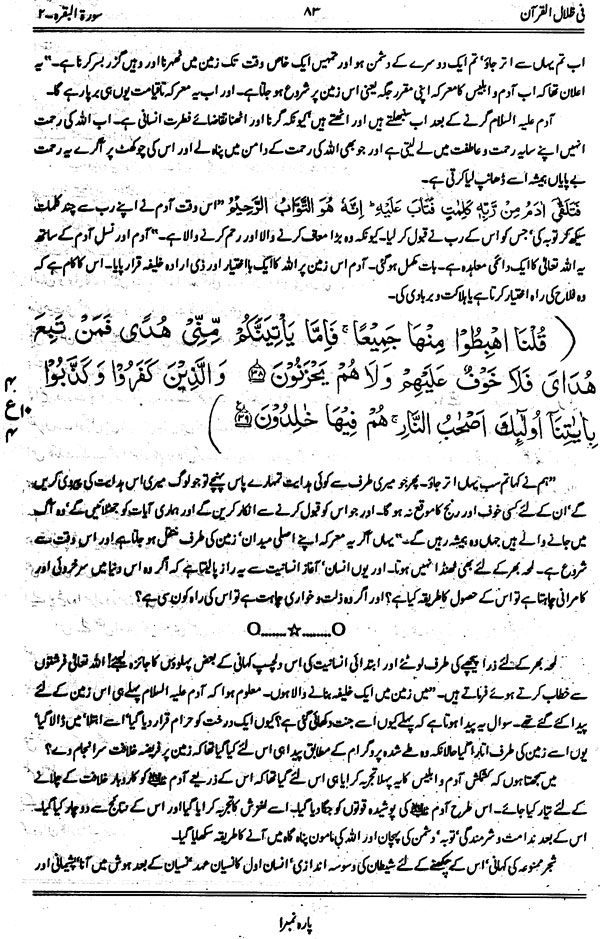 فی ظلال القرآن ۸۳ سورۃ البقرہ-۲
اب تم یہاں سے اتر جاؤ‘ تم ایک دوسرے کے دشمن ہو اور تمہیں ایک خاص وقت تک زمین میں ٹھہرنا اور وہیں گزر بسر کرنا ہے۔“ یہ
اعلان تھا کہ اب آدم و ابلیس کا معرکہ اپنی مقررہ جگہ یعنی اس زمین پر شروع ہو جاتا ہے۔ اور اب یہ معرکہ تا قیامت یوں ہی برپا رہے گا۔
آدم علیہ السلام گرنے کے بعد اب سنبھلتے ہیں اور اٹھتے ہیں‘ کیونکہ گرنا اور اٹھنا تقاضائے فطرت انسانی ہے۔ اب اللہ کی رحمت
انہیں اپنے سایہ رحمت و عاطفت میں لے لیتی ہے اور جو بھی اللہ کی رحمت کے دامن میں پناہ لے اور اس کی چوکھٹ پر آگرے یہ رحمت
بے پایاں ہمیشہ اسے ڈھانپ لیا کرتی ہے۔
فَتَلَقّٰٓی اٰدَمُ مِنْ رَّبِّهٖ كَلِمٰتٍ فَتَابَ عَلَیْهِ ؕ اِنَّهٗ هُوَ التَّوَّابُ الرَّحِیْمُ ”اس وقت آدم نے اپنے رب سے چند کلمات
سیکھ کر توبہ کی‘ جس کو اس کے رب نے قبول کر لیا۔ کیونکہ وہ بڑا معاف کرنے والا اور رحم کرنے والا ہے۔“ آدم اور نسل آدم کے ساتھ
یہ اللہ تعالیٰ کا ایک دائمی معاہدہ ہے۔ بات مکمل ہو گئی۔ آدم اس زمین پر اللہ کا ایک با اختیار اور ذی ارادہ خلیفہ قرار پایا۔ اس کا کام ہے کہ
وہ فلاح کی راہ اختیار کرتا ہے یا ہلاکت و بربادی کی۔
( قُلْنَا اهْبِطُوْا مِنْهَا جَمِیْعًا ۚ فَاِمَّا یَاْتِیَنَّكُمْ مِّنِّیْ هُدًی فَمَنْ تَبِعَ
هُدَایَ فَلَا خَوْفٌ عَلَیْهِمْ وَلَا هُمْ یَحْزَنُوْنَ ۝۳۸ وَالَّذِیْنَ كَفَرُوْا وَكَذَّبُوْا
بِاٰیٰتِنَآ اُولٰٓئِكَ اَصْحٰبُ النَّارِ ۚ هُمْ فِیْهَا خٰلِدُوْنَ ۝۳۹ )
۴
۱۰ع
۴
”ہم نے کہا تم سب یہاں اتر جاؤ۔ پھر جو میری طرف سے کوئی ہدایت تمہارے پاس پہنچے تو جو لوگ میری اس ہدایت کی پیروی کریں
گے‘ ان کے لئے کسی خوف اور رنج کا موقع نہ ہو گا۔ اور جو اس کو قبول کرنے سے انکار کریں گے اور ہماری آیات کو جھٹلائیں گے‘ وہ آگ
میں جانے والے ہیں جہاں وہ ہمیشہ رہیں گے۔“ یہاں آ کر یہ معرکہ اپنے اصلی میدان‘ زمین کی طرف منتقل ہو جاتا ہے اور اس وقت سے
شروع ہے۔ لمحہ بھر کے لئے بھی ٹھنڈا نہیں ہوتا۔ اور یوں انسان‘ آغاز انسانیت سے یہ راز پا لیتا ہے کہ اگر وہ اس دنیا میں سرخروئی اور
کامرانی چاہتا ہے تو اس کے حصول کا طریقہ کیا ہے؟ اور اگر وہ ذلت و خواری چاہت ہے تو اس کی راہ کون سی ہے؟
O......☆......O
لمحہ بھر کے لئے ذرا پیچھے کی طرف لوٹئے اور ابتدائی انسانیت کی اس دلچسپ کہانی کے بعض پہلوؤں کا جائزہ لیجئے! اللہ تعالیٰ فرشتوں
سے خطاب کرتے ہوئے فرماتے ہیں۔ ”میں زمین میں ایک خلیفہ بنانے والا ہوں۔ معلوم ہوا کہ آدم علیہ السلام پہلے ہی اس زمین کے لئے
پیدا کئے گئے تھے۔ سوال یہ پیدا ہوتا ہے کہ پہلے کیوں اسے جنت دکھائی گئی ہے؟ کیوں ایک درخت کو حرام قرار دیا گیا‘ اسے ابتلا میں ڈالا گیا‘
یوں اسے زمین کی طرف اتارا گیا حالانکہ وہ طے شدہ پروگرام کے مطابق پیدا ہی اس لئے کیا گیا تھا کہ زمین پر فریضہ خلافت سرانجام دے؟
میں سمجھتا ہوں کہ کشمکش آدم و ابلیس کا یہ پہلا تجربہ کرایا ہی اس لئے گیا تھا کہ اس کے ذریعے آدم علیہ السلام کو کاروبار خلافت کے چلانے
کے لئے تیار کیا جائے۔ اس طرح آدم علیہ السلام کی پوشیدہ قوتوں کو جگا دیا گیا۔ اسے لغزش کا تجربہ کرایا گیا اور اس کے نتائج سے دوچار کیا گیا۔
اس کے بعد ندامت و شرمندگی‘ توبہ‘ دشمن کی پہچان اور اللہ کی مامون پناہ گاہ میں آنے کا طریقہ سکھلایا گیا۔
شجر ممنوعہ کی کہانی‘ اس کے چکھنے کے لئے شیطان کی وسوسہ اندازی‘ انسان اول کا نسیان عہد‘ نسیان کے بعد ہوش میں آنا‘ پشیمانی اور
پارہ نمبر۱